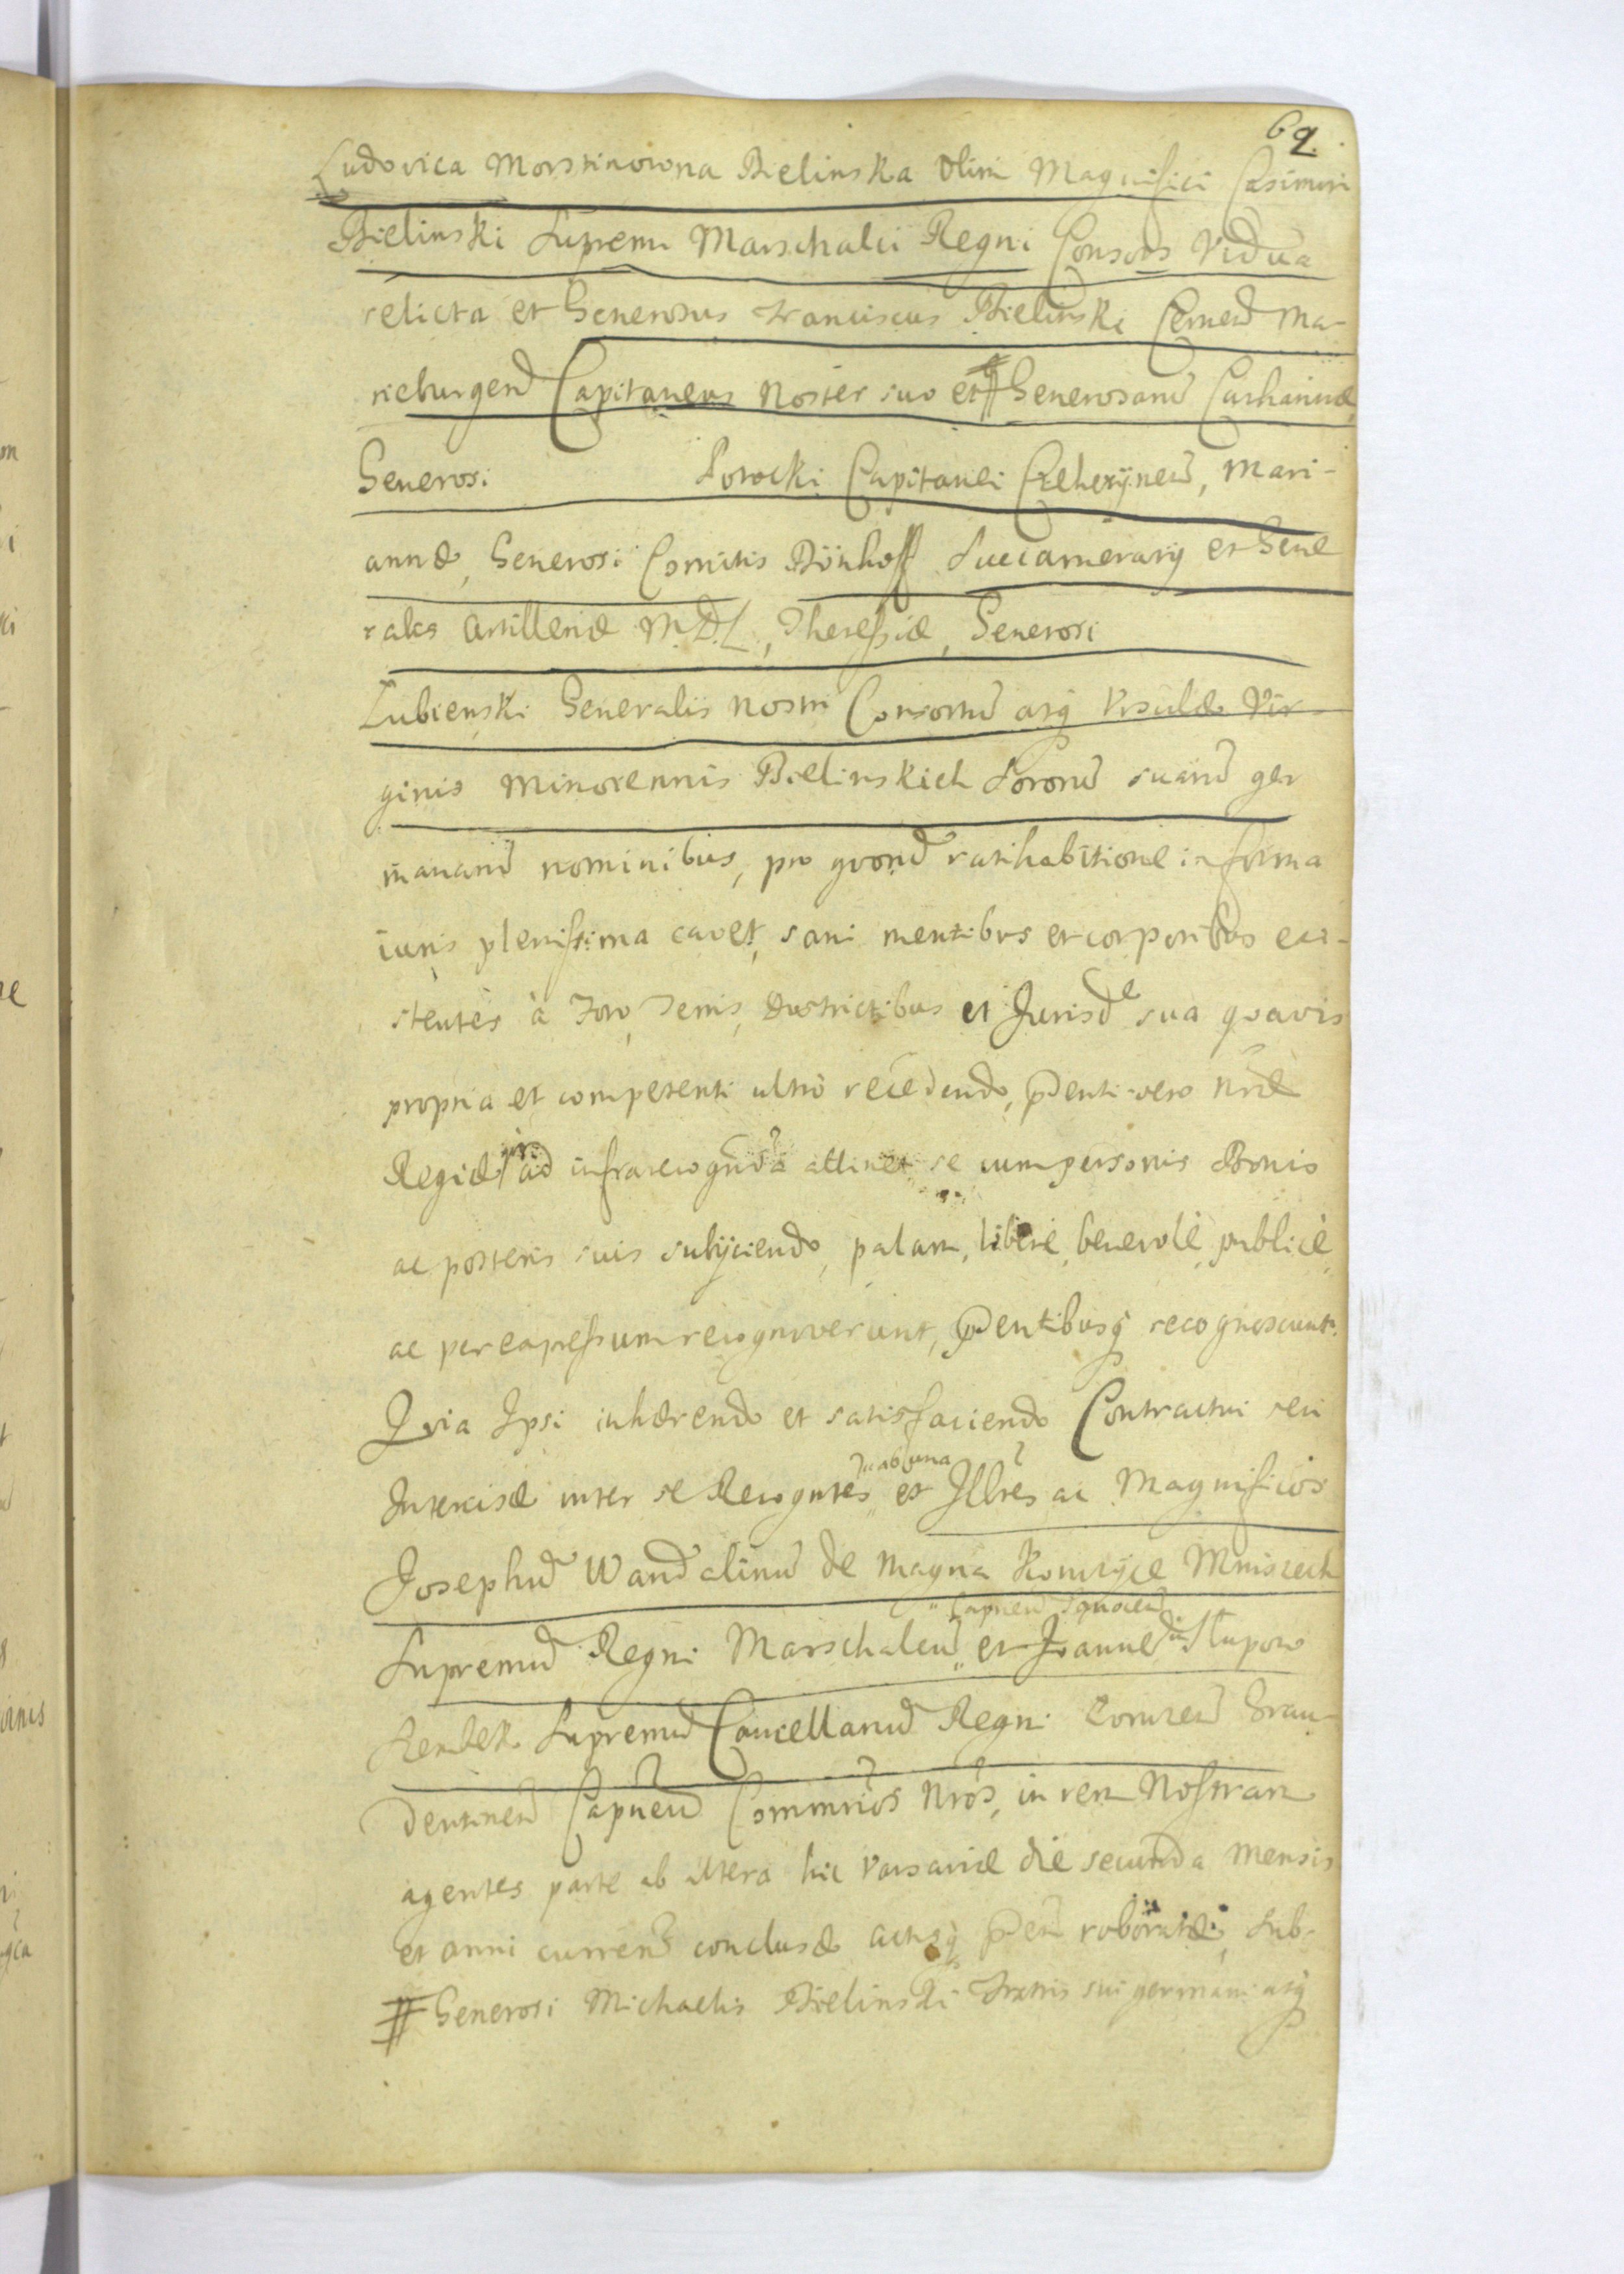 69.
Ludovica Morstinowna Bielinska Olim Magnifici Casimiri
Bielinski Supremi Marschalci Regni Consors Vidua
relicta et Generosus Franciscus Bielinski Ma-
rieburgen Capitaneus Noster suo et # Generosarum Catharinæ,
Generosi Potocki Capitanei Czeherynen, Mari-
annæ, Generosi Comitis Dönhoff Succamerarij et Gene
ralis Artilleriæ M.D.L., Theressiæ, Generosi
Lubienski Generalis Nostri Consortum atq Ursulæ Vir-
ginis Minorennis Bielinskich Sororum suarum ger
manarum nominibus, pro quorum ratihabitione in forma
iuris plenissima cavet, sani mentibus et corporibus exi-
stentes à Foro, Terris, Districtibus et Jurisde sua quavis
propria et competenti ultrò recedendo, Pnti vero Nræ
Regiæ ad infrarecognda attinet se cum personis Bonis
ac posteris suis subijciendo, palam, liberè, benevolè, publicè,
ac per expressum recognoverunt, Pntibusq recognoscunt.
Quia Ipsi inhærendo et satisfaciendo Contractui seu
Intercisæ inter se Recogntes ab una et Illres ac Magnificos
Josephum Wandalinum de Magna Konczyce Mniszech
Supremum Regni Marschalcum et Joannem in Slupow
Szembek Supremum Cancellarium Regni Lomzen Grau-
dentinen Capneum Commrios Nros, in rem Nostram
agentes parte ab altera hic Varsaviæ die secunda Mensis
et anni curren conclusæ actisq Pnti roboratæ, Sub-
# Generosi Michaelis Bielinski Fratris sui germani atq